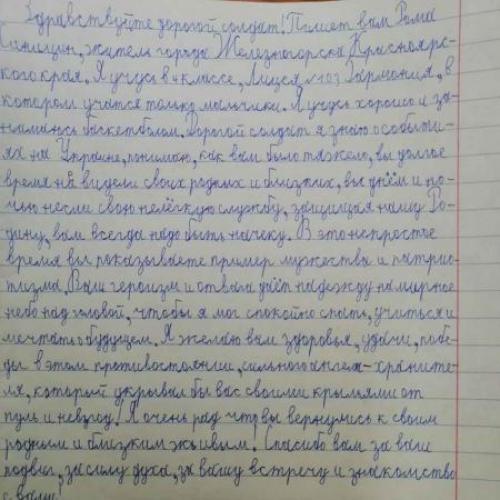 Здравствуйте дорогой солдат! Пишет вам Рома
Синицин, житель города Железногорска Красноярс-
кого края. Я учусь в 4 классе, Лицея №103 "Гармония", в
котором учатся только мальчики. Я учусь хорошо и за-
нимаюсь баскетболом. Дорогой солдат я знаю о событи-
ях на Украине, понимаю, как вам было тяжело, вы долгое
время не видели своих родных и близких, вы днём и но-
чью несли свою нелёгкую службу, защищая нашу Ро-
дину, вам всегда надо быть начеку. В это непростое
время вы показываете пример мужества и патрио-
тизма. Ваш героизм и отвага даёт надежду на мирное
небо над головой, чтобы я мог спокойно спать, учиться и
мечтать о будущем. Я желаю вам здоровья, удачи, побе-
ды в этом противостоянии, сильного ангела-храните-
ля, который укрывал бы вас своими крыльями от
пуль и невзгод! Я очень рад что вы вернулись к своим
родным и близким живым! Спасибо вам за ваш
подвиг, за силу духа, за вашу встречу и знакомство
с вами!